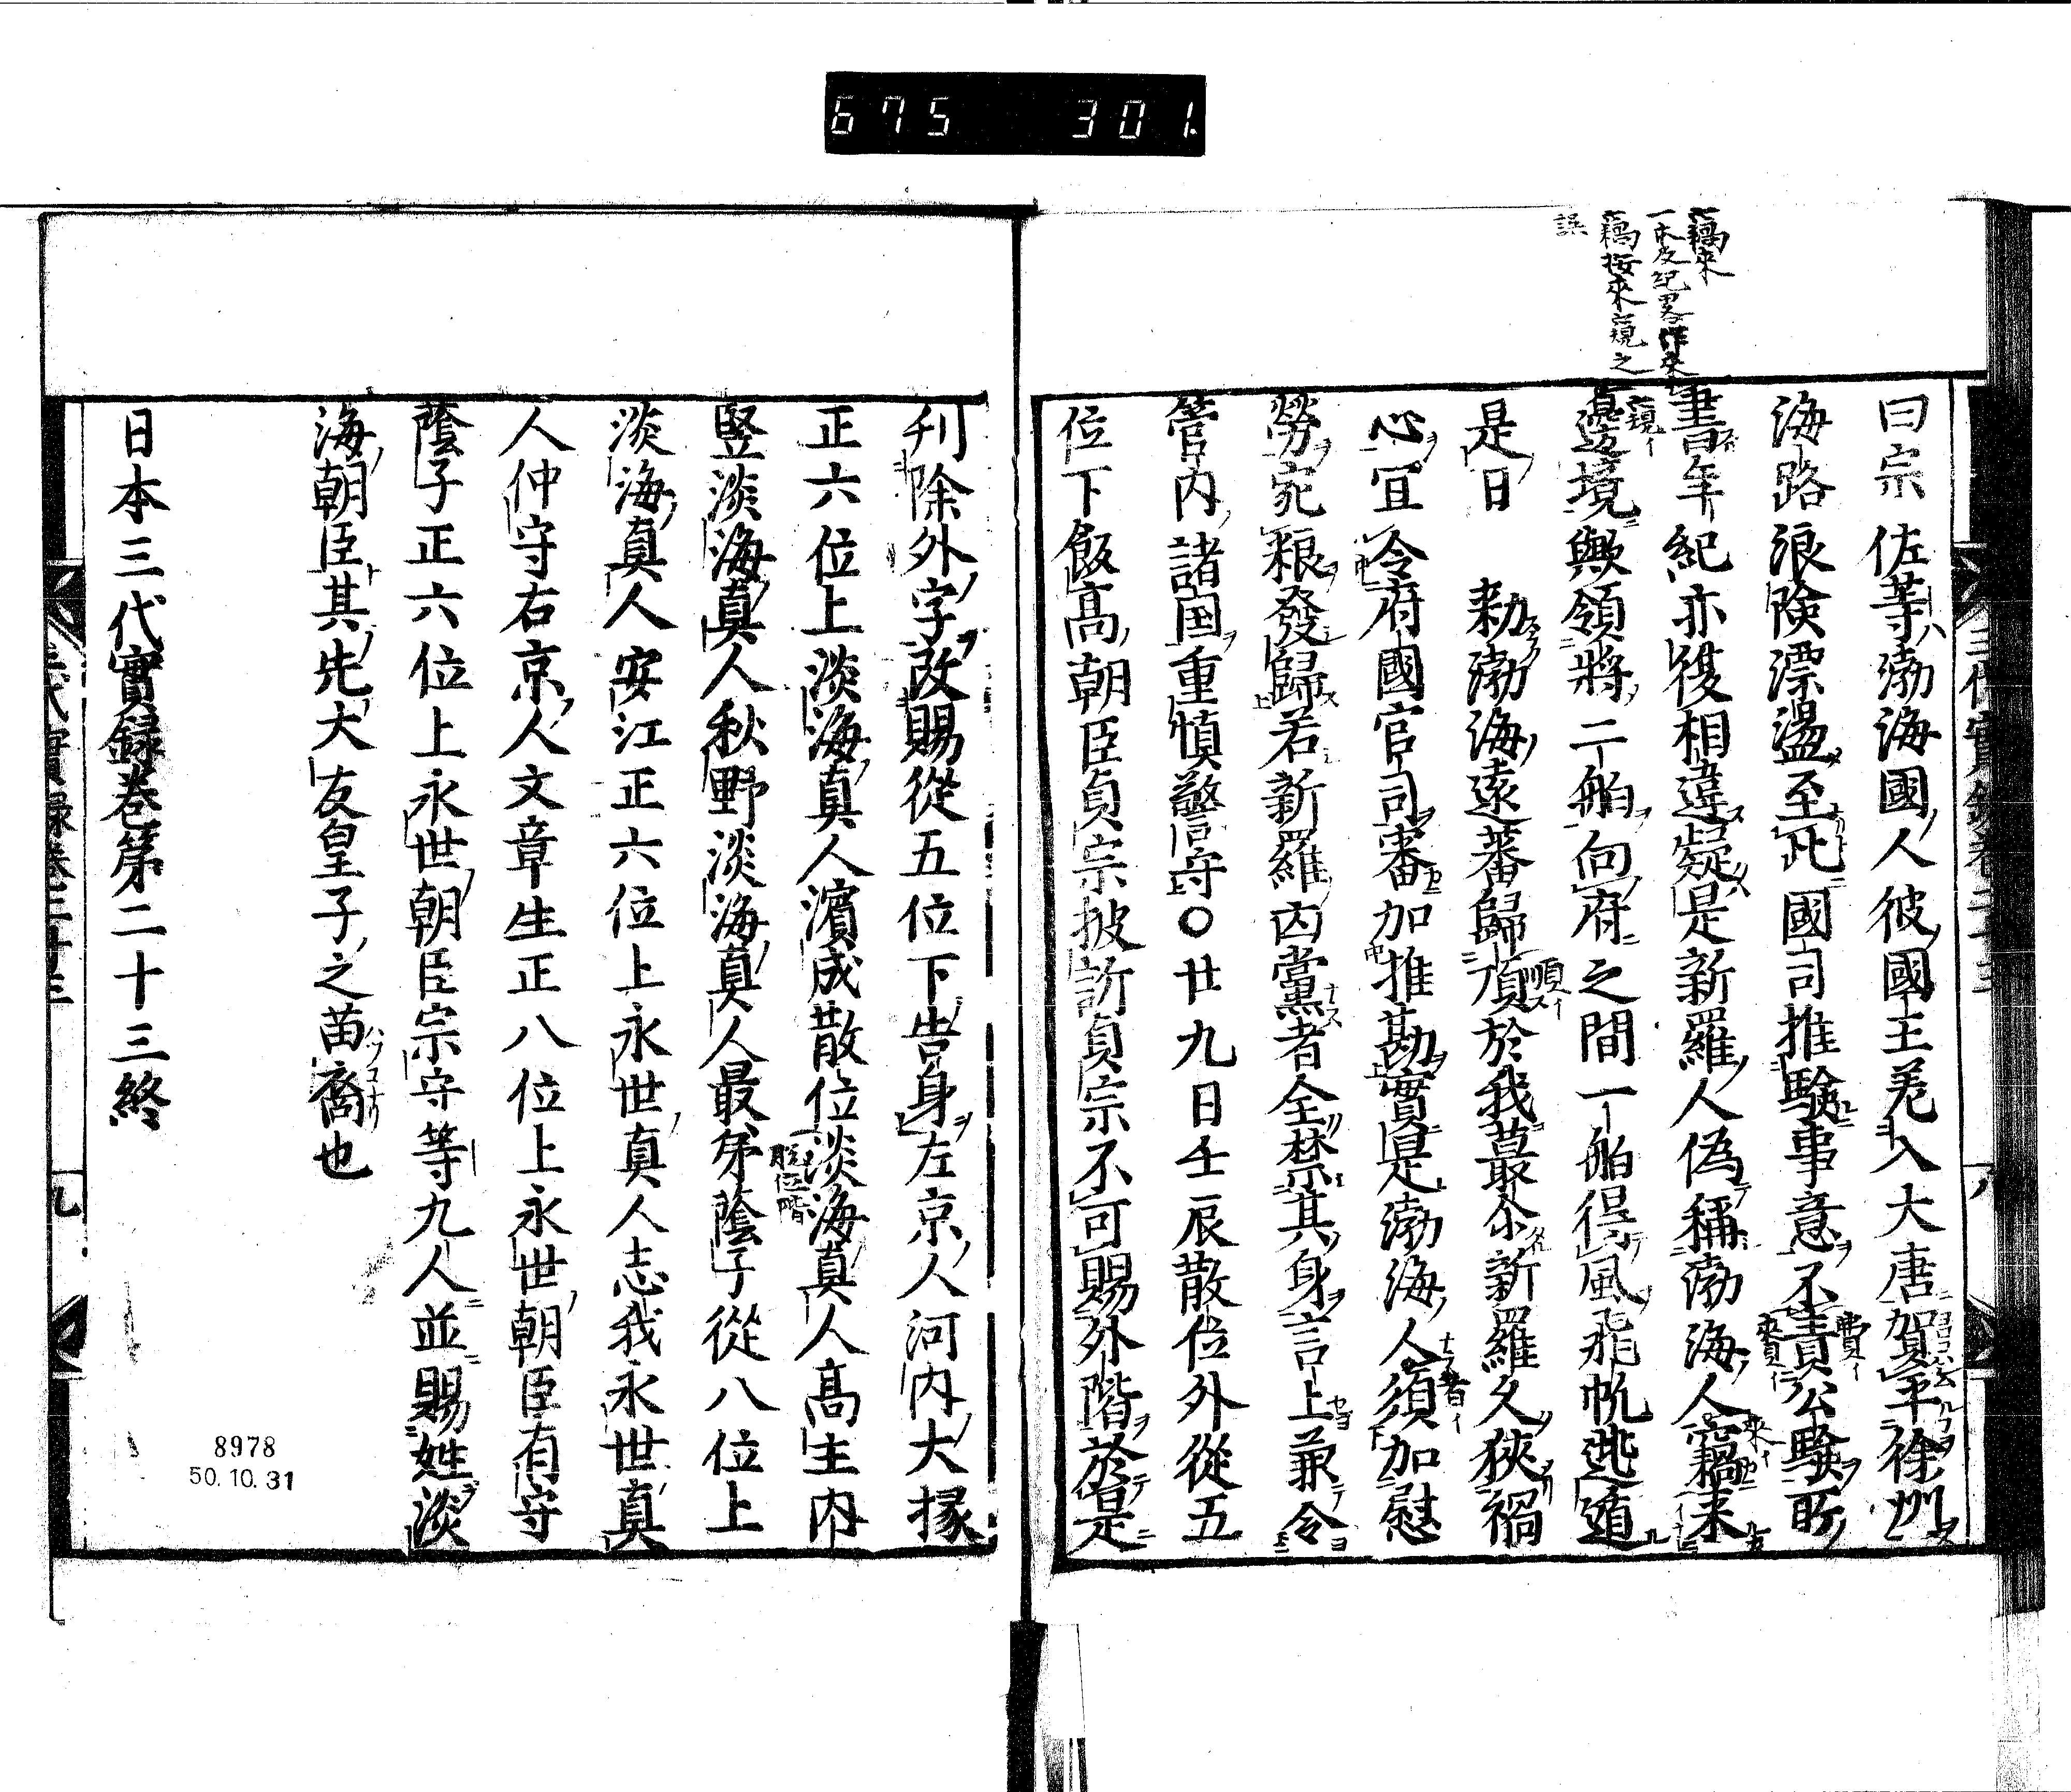 675 301.
竊来
一本及紀畧作来
竊按来窺之
誤
曰宗佐等渤海國人彼國王差入大唐賀平徐州
海路浪険漂盪至此國司推験事意不責公験所
書年紀亦復相違疑是新羅人偽稱渤海人竊来
邊境歟領將二舶向府之間一舶得風飛帆逃遁
是日 勅渤海遠蕃歸順於我蕞尒新羅久狹禍
心宜令府國官司審加推勘實是渤海人須加慰
勞宛粮發歸若新羅凶黨者全禁其身言上兼令
管内諸国重慎警守〇廿九日壬辰散位外從五
位下飯髙朝臣貞宗披訴貞宗不可賜外階於是
刋除外字改賜從五位下告身左京人河内大掾
正六位上淡海真人濱成散位淡海真人髙主内
竪淡海真人秋野淡海真人最弟蔭子從八位上
脱位階
淡海真人安江正六位上永世真人志我永世真
人仲守右京人文章生正八位上永世朝臣有守
蔭子正六位上永世朝臣宗守等九人並賜姓淡
海朝臣其先大友皇子之苗裔也
日本三代實録巻第二十三終
三代實録巻二十三
九
8978
50.10.31